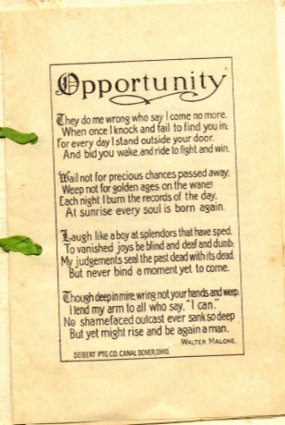 Opportunity
They do me wrong who say I come no more.
When once I knock and fail to find you in;
For every day I stand outside your door.
And bid you wake, and ride to fight and win.
Wail not for precious chances passed away,
Weep not for golden ages on the wane!
Each night I burn the records of the day,
At sunrise every soul is born again.
Laugh like a boy at splendors that have sped,
To vanished joys be blind and deaf and dumb;
My judgements seal the past dead with its dead.
But never bind a moment yet to come.
Though deep in mire, wring not your hands and weep
I lend my arm to all who say, "I can."
No shamefaced outcast ever sank so deep
But yet might rise and be again a man.
WALTER MALONE.
SEIBERT PTG. CO. CANAL DOVER, OHIO.